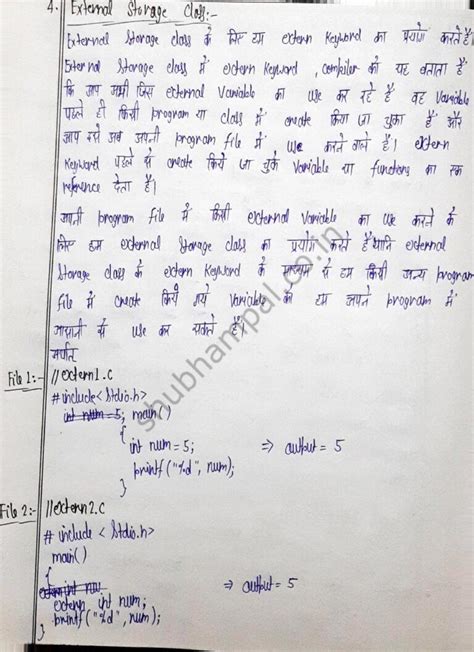 4. External Storage Class:-
External Storage class के लिए हम extern keyword का प्रयोग करते हैं।
External Storage class में extern keyword, compiler को यह बताता है
कि आप अभी जिस external variable का use कर रहे हैं वह variable
पहले ही किसी program या class में create किया जा चुका है और
आप इसे अब अपनी program file में use करने वाले हैं। extern
keyword पहले से create किये जा चुके variable या functions का एक
reference देता है।
यानी program file में किसी external variable का use करने के
लिए हम external storage class का प्रयोग करते हैं यानि external
Storage class के extern keyword के माध्यम से हम किसी अन्य program
file में create किये गये variable को हम अपने program में
आसानी से use कर सकते हैं।
अर्थात्
File 1:- //extern1.c
#include<stdio.h>
int num=5; main()
{
int num=5; ⇒ output = 5
printf("%d", num);
}
File 2:- //extern2.c
# include <stdio.h>
main()
{
extern int num; ⇒ output = 5
printf("%d", num);
}
shubhampal.co.in